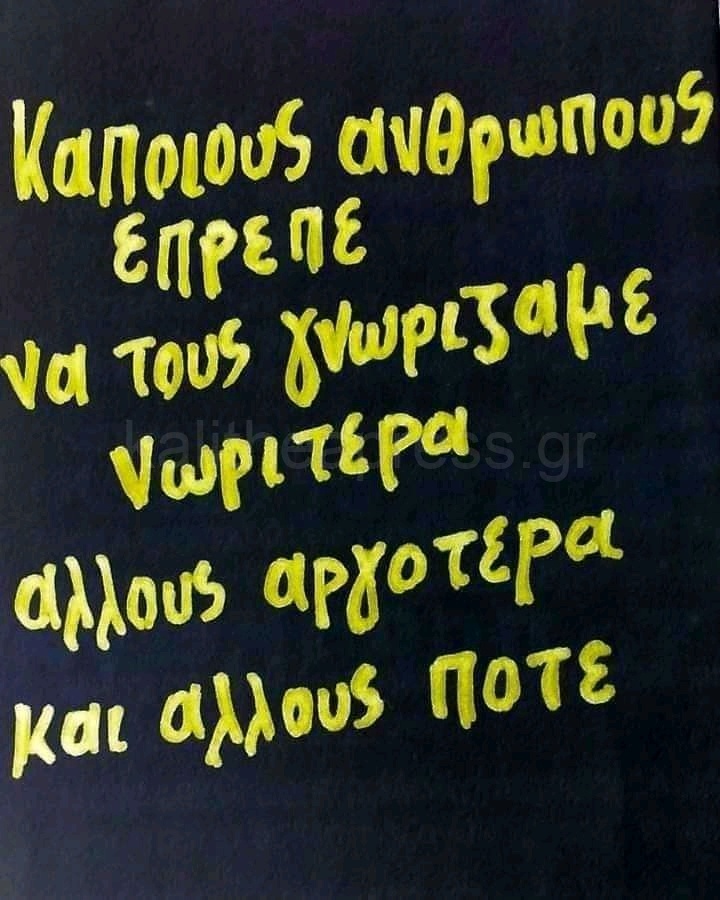 Καποιους ανθρωπους
επρεπε
να τους γνωριζαμε
νωριτερα
kalitheapress.gr
αλλους αργοτερα
και αλλους ποτε